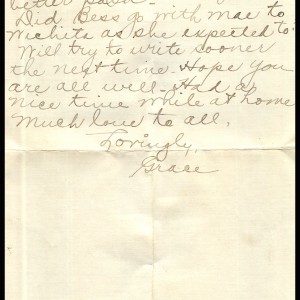 better
Did Bess go with Mae to
Wichita as she expected to.
Will try to write sooner
the next time. Hope you
are all well. Had a
nice time while at home
Much love to all,
Lovingly,
Grace